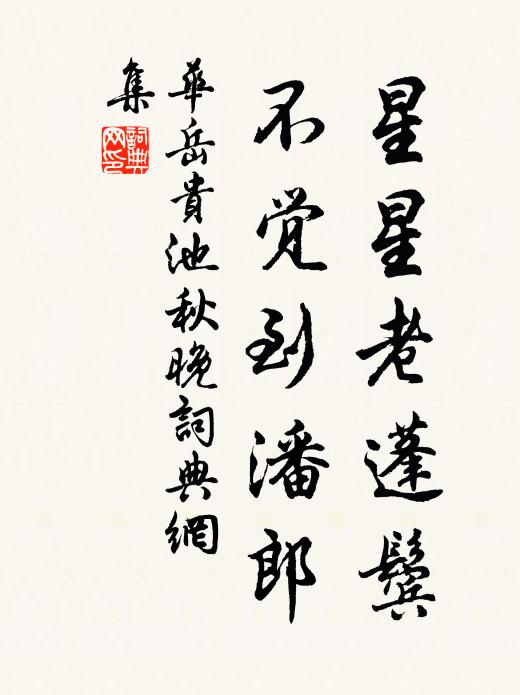 星星老蓬鬓
不觉到潘郎
華岳貴池秋晚詞典網
集
詞典
网印